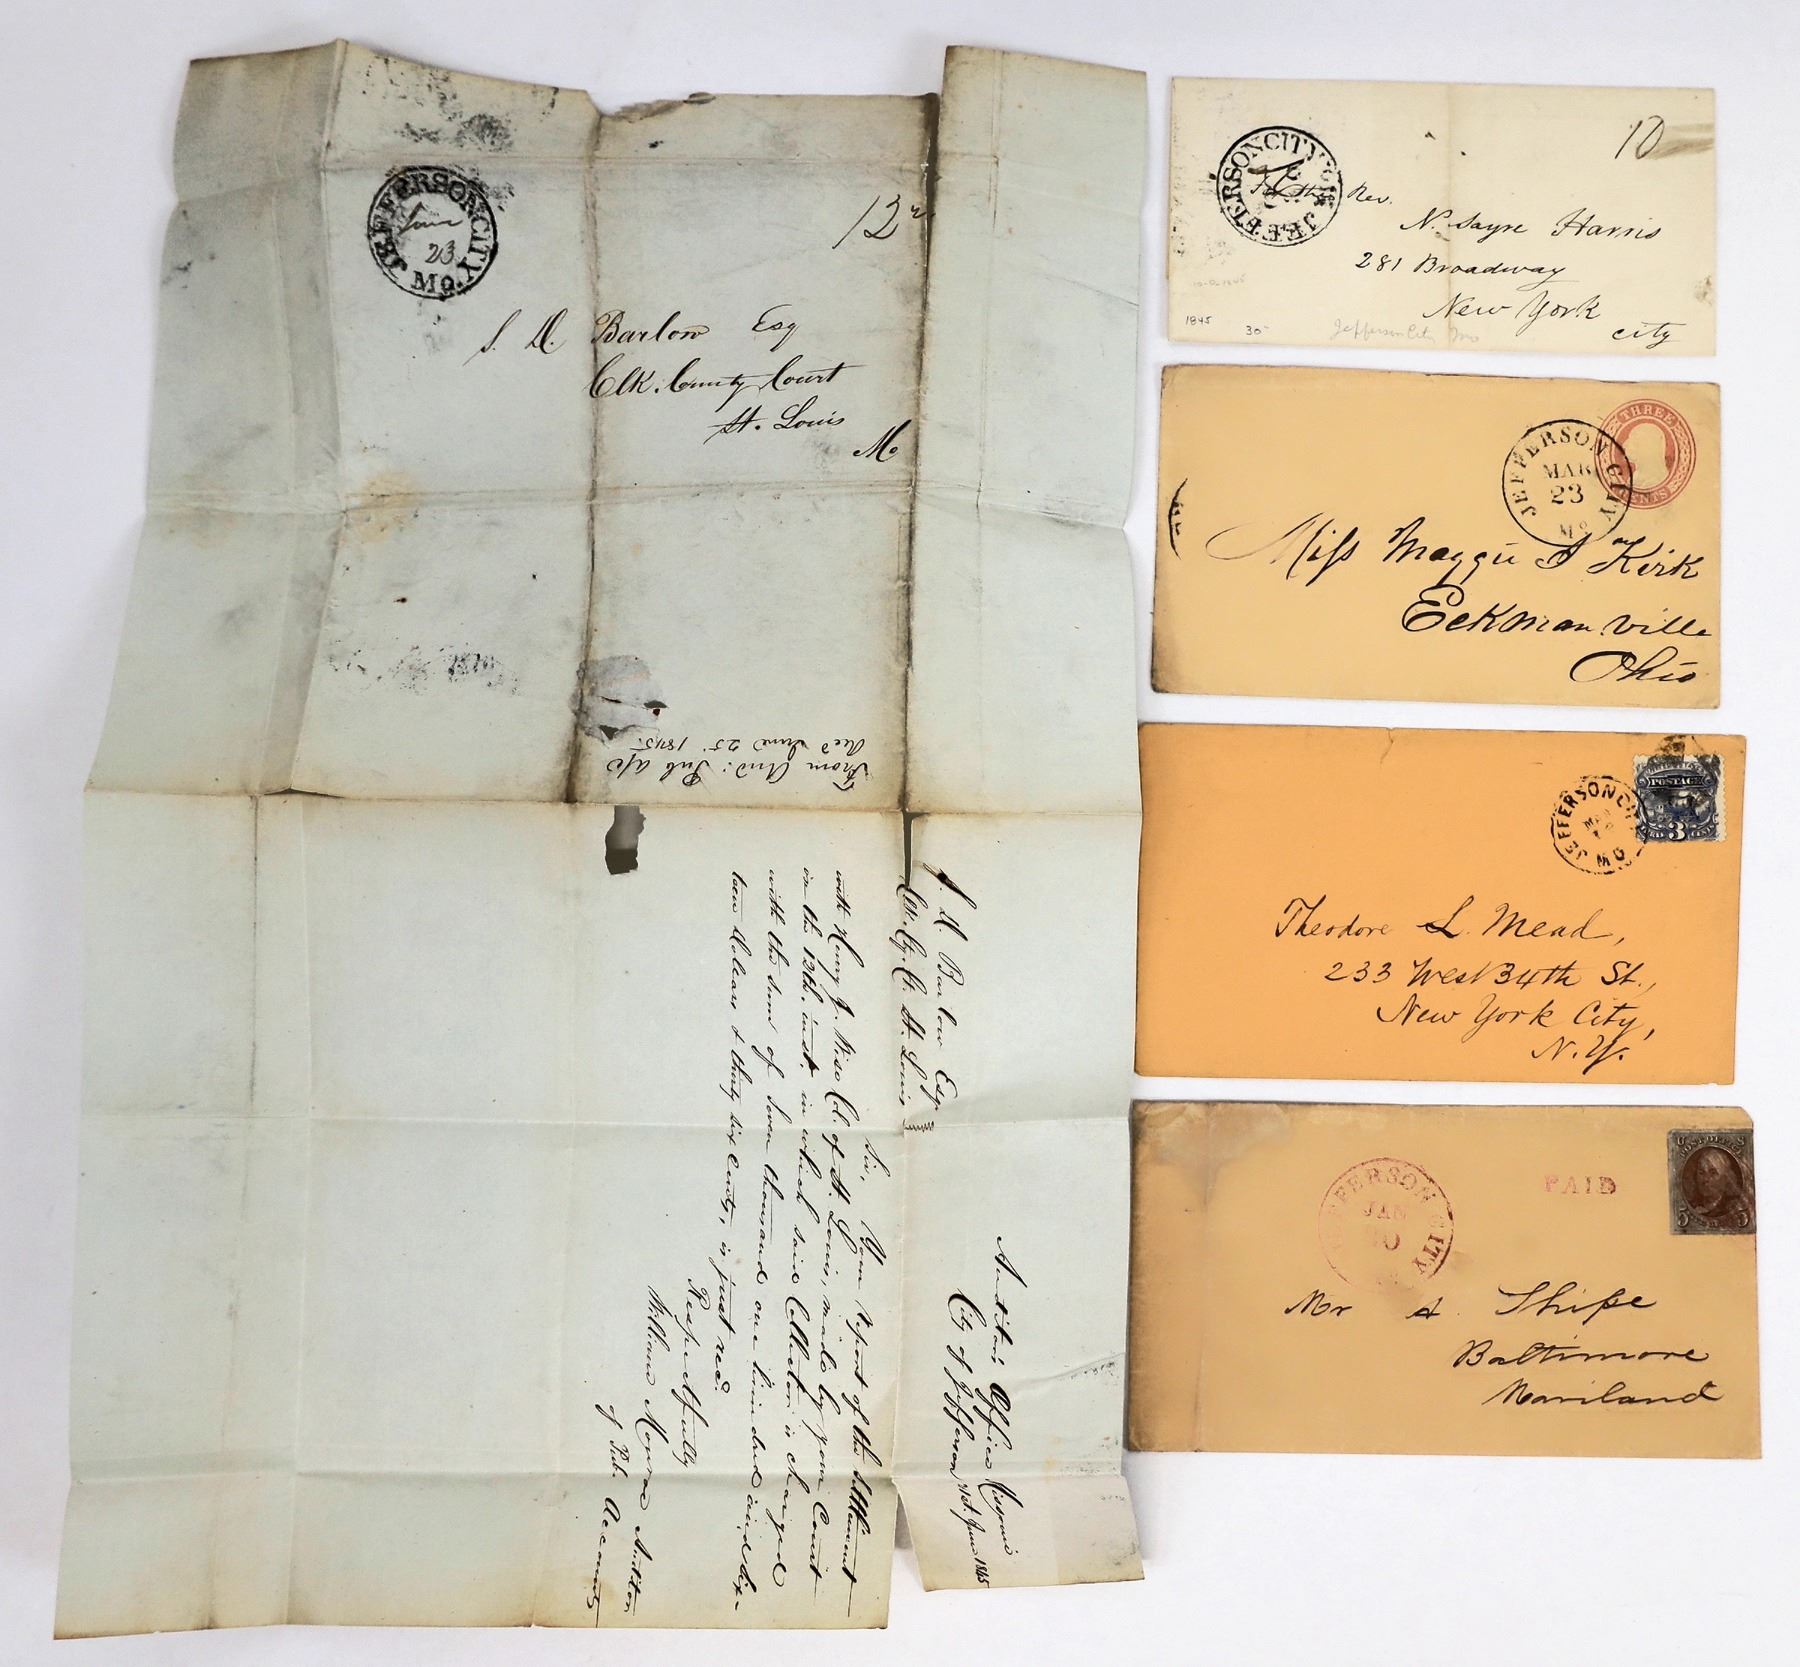 JEFFERSON CITY
June
23
Mo.
12½
S. D. Barlow Esq
Clk. County Court
St. Louis
Mo
From Aud: Pub a/c
Recd June 25 1845.
Auditor's Office Missouri
City of Jefferson 21st. June 1845
S. D. Barlow Esqr
Clk. Cy. Ct. St. Louis County
Sir, Your report of the settlement
with Henry J. Wise Col. of St. Louis, made by your Court
on the 13th. inst. in which said Collector is charged
with the sum of seven thousand one hundred and fif-
teen dollars & thirty six cents, is just recd.
Respectfully
William Monroe Auditor
of Pub. Accounts
JEFFERSON CITY
10
Rev.
N. Sayre Harris
281 Broadway
New York
City
1845
30-
Jefferson City Mo
THREE
CENTS
JEFFERSON CITY
MAR
23
Mo
Miss Maggie A Kirk
Eckmanville
Ohio
POSTAGE
3
JEFFERSON CITY
MO
Theodore L. Mead,
233 West 34th St.,
New York City,
N.Y.
POST OFFICE
5 5
PAID
JEFFERSON CITY
JAN
10
Mr A Shipe
Baltimore
Mariland